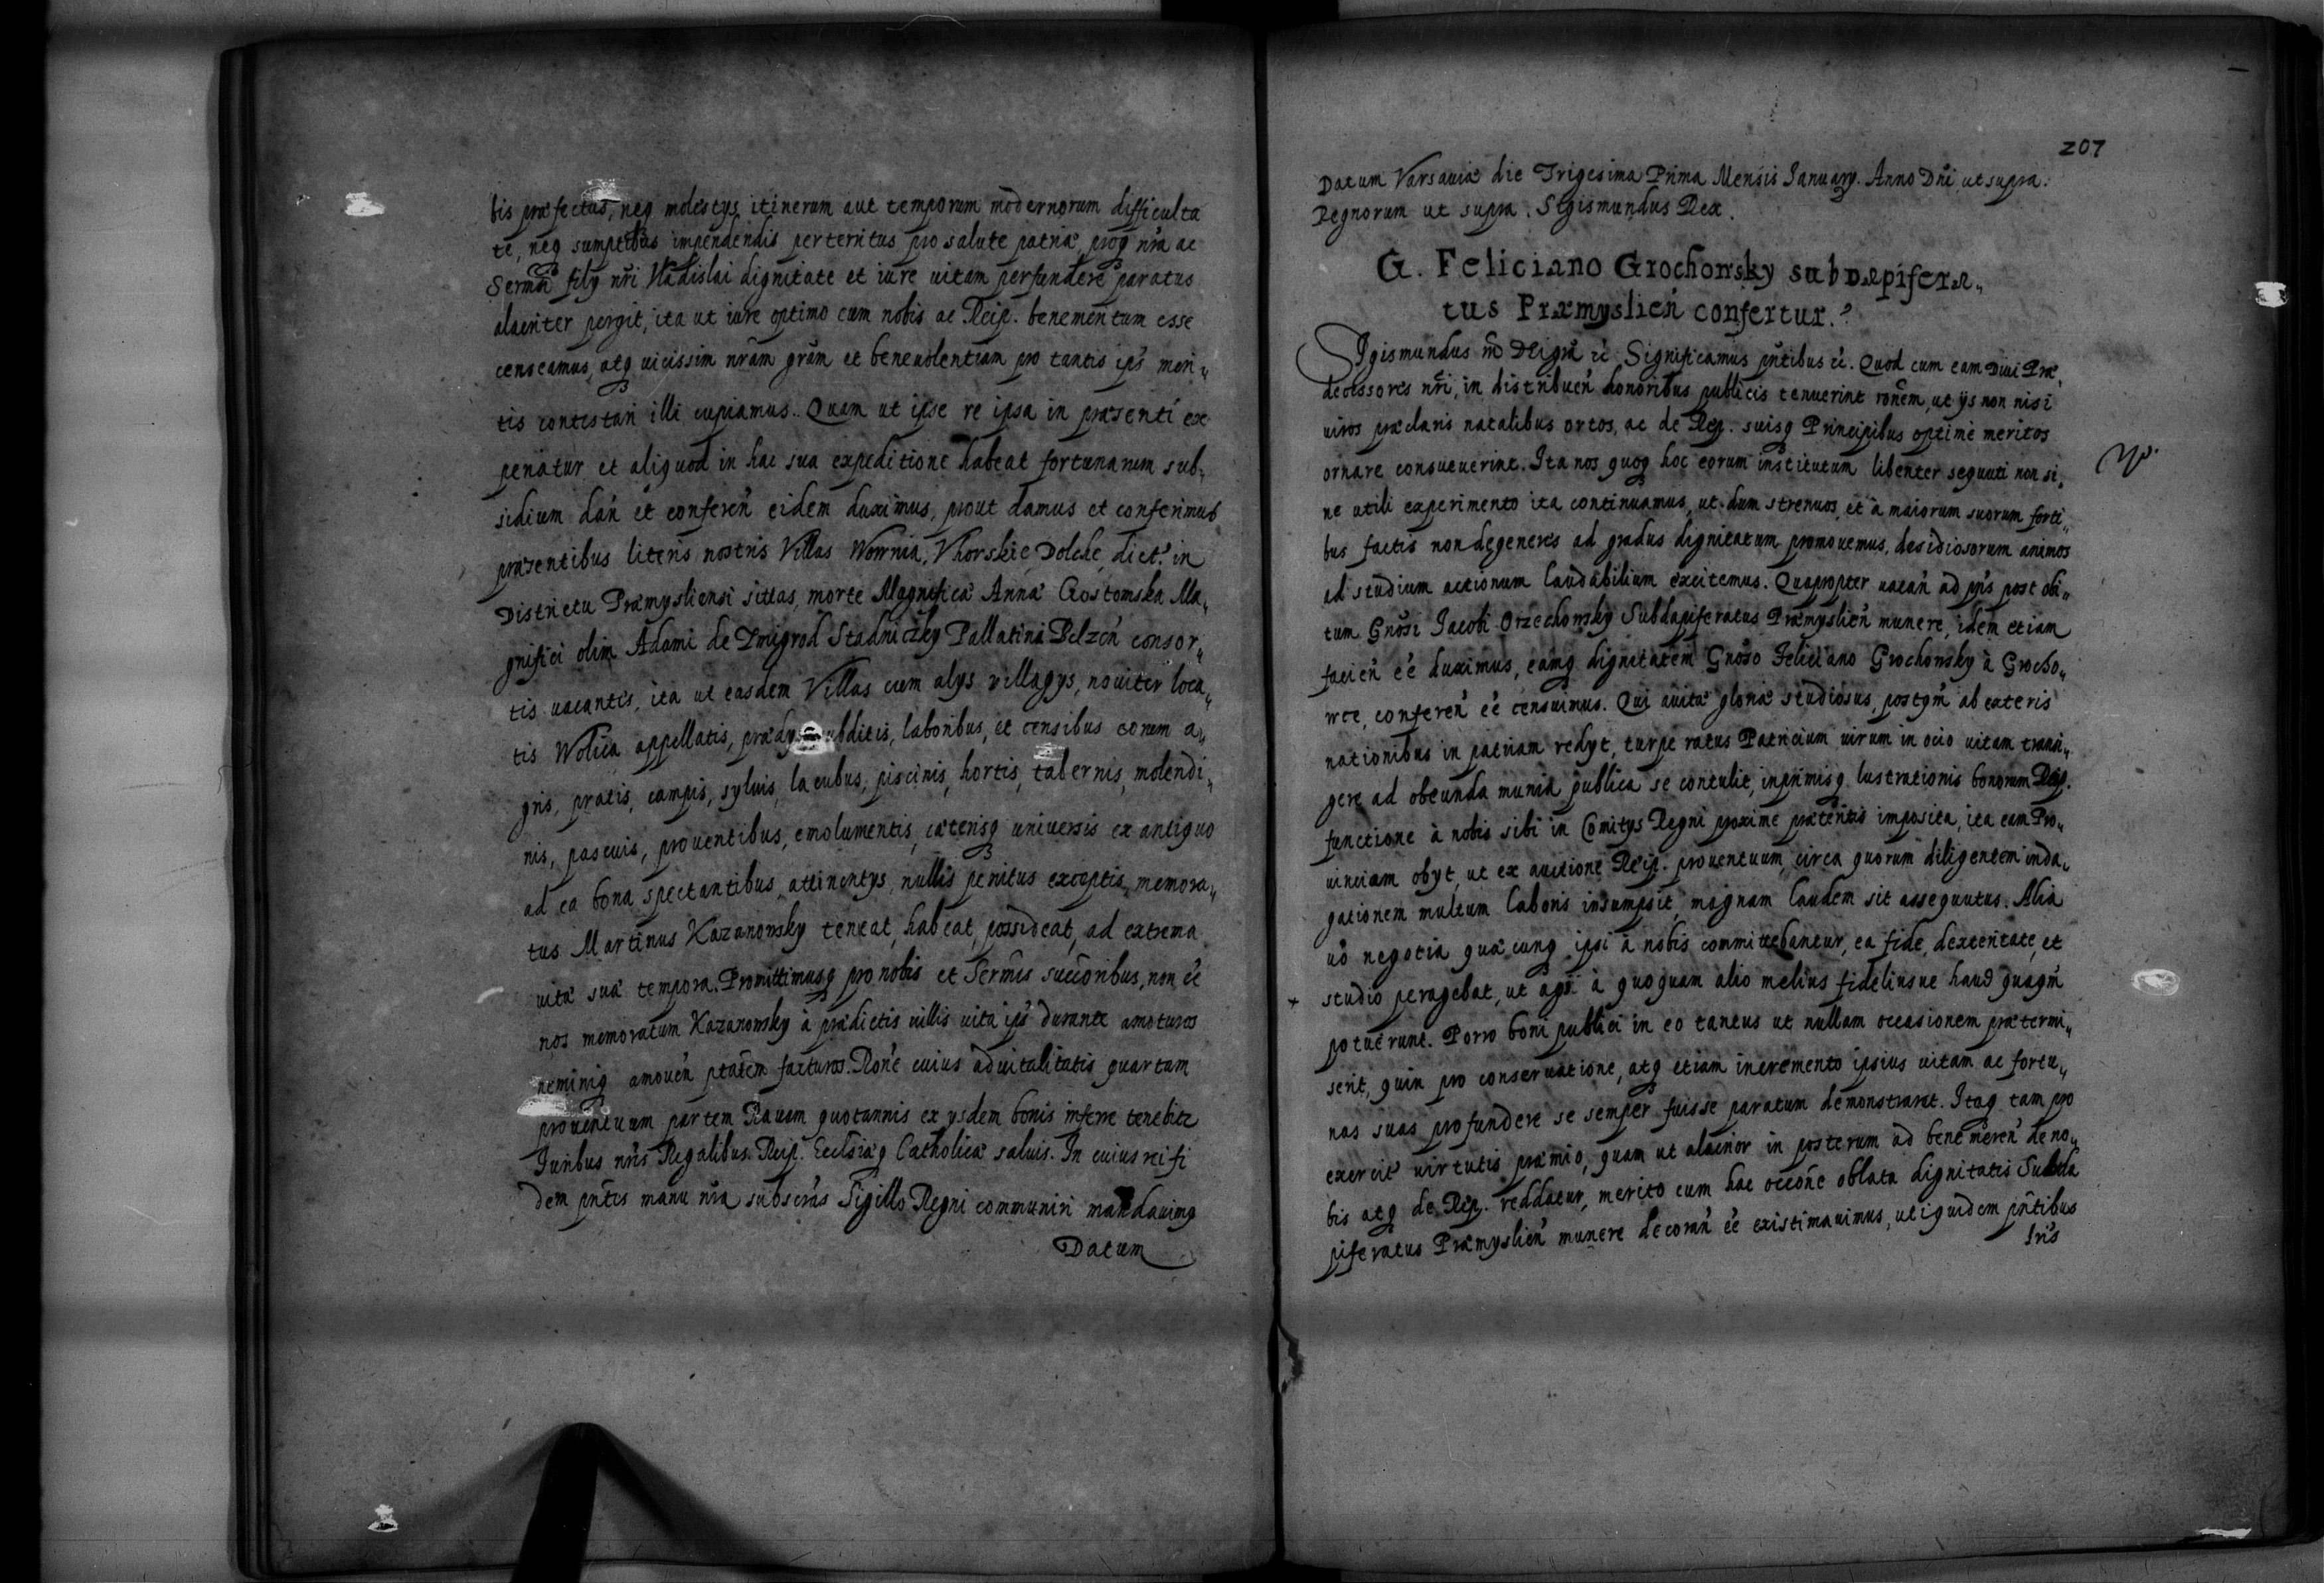 bis præfectus, neq molestys itinerum aut temporum modernorum difficulta
te, neq sumptibus impendendis perterritus pro salute patriæ, proq nra ac
Sermi fily nri Wladislai dignitate et iure uitam perfundere paratus
alacriter pergit, ita ut iure optimo eum nobis ac Reip. benemeritum esse
censeamus, atq uicissim nram gram et beneuolentiam pro tantis ips meri„
tis contestari illi cupiamus. Quam ut ipse re ipsa in præsenti ex
periatur et aliquod in hac sua expeditione habeat fortunarum sub„
sidium dan et conferen eidem duximus, prout damus et conferimus
præsentibus literis nostris Villas Wornia, Vhorskie, Dolche, dict. in
Districtu Præmysliensi sitas, morte Magnificæ Annæ Gostomska Ma„
gnifici olim Adami de Zmigrod Stadniczky Pallatini Belzen consor„
tis uacantis, ita ut easdem Villas cum alys villagys, nouiter loca„
tis Wolica appellatis, prædys subditis, laboribus, et censibus eorum a„
gris, pratis, campis, syluis, lacubus, piscinis, hortis, tabernis, molendi„
nis, pascuis, prouentibus, emolumentis, cæterisq uniuersis ex antiquo
ad ea bona spectantibus, attinentys, nullis penitus exceptis, memora„
tus Martinus Kazanowsky teneat, habeat, possideat, ad extrema
uitæ suæ tempora. Promittimusq pro nobis et Sermis succoribus, non eé
nos memoratum Kazanowsky à prædictis uillis uita ips durante amoturos
neminiq amouen ptatem facturos. Rone cuius aduitalitatis quartam
prouentuum partem Rauam quotannis ex ysdem bonis inferre tenebitr
Iuribus nris Regalibus Reip. Ecclsiæq Catholicæ saluis. In cuius rei fi
dem pntes manu nra subscras Sigillo Regni communiri mandauimq
Datum
207
Datum Varsauiæ die Trigesima Prima Mensis Ianuary. Anno Dni, ut supra.
Regnorum ut supra. Sigismundus Rex.
G. Feliciano Grochowsky subdapifera„
tus Præmyslien confertur.
Sigismundus 3us Dei gra &c Significamus pntibus &c. Quod cum eam Diui Præ„
decessores nri, in distribuen honoribus publicis tenuerint ronem, ut ys non nisi
uiros præclaris natalibus ortos, ac de Rep. suisq Principibus optime meritos
ornare consueuerint. Ita nos quoq hoc eorum institutum libenter sequuti non si„
ne utili experimento ita continuamus, ut dum strenuos, et à maiorum suorum forti„
bus factis non degeneres ad gradus dignitatum promouemus, desidiosorum animos
ad studium actionum laudabilium excitemus. Quapropter uacan ad pns post obi„
tum Gnosi Iacobi Orzechowsky Subdapiferatus Præmyslien munere, idem etiam
facien eé duximus, eamq dignitatem Gnoso Feliciano Grochowsky à Grocho„
wce, conferen eé censuimus. Qui auitæ gloriæ studiosus, postqm ab exteris
nationibus in patriam redyt, turpe ratus Patricium uirum in ocio uitam transi„
gere ad obeunda munia publica se contulit, inprimisq lustrationis bonorum Reip.
functione à nobis sibi in Comitys Regni proxime præteritis imposita, ita eam Pro„
uinciam obyt, ut ex auctione Reip. prouentuum, circa quorum diligentem inda„
gationem multum laboris insumpsit, magnam laudem sit assequutus. Alia
uo negotia quæcunq ipsi à nobis committebantur, ea fide, dexteritate, et
studio peragebat, ut agi à quoquam alio melius fideliusue haud quaqm
potuerunt. Porro boni publici in eo tantus ut nullam occasionem prætermi„
serit, quin pro conseruatione, atq etiam incremento ipsius uitam ac fortu„
nas suas profundere se semper fuisse paratum demonstraret. Itaq tam pro
exercit uirtutis præmio, quam ut alacrior in posterum ad bene meren de no„
bis atq de Rep. reddatur, merito cum hac occone oblata dignitatis Subda
piferatus Præmyslien munere decoran eé existimauimus, uti quidem pntibus
lris